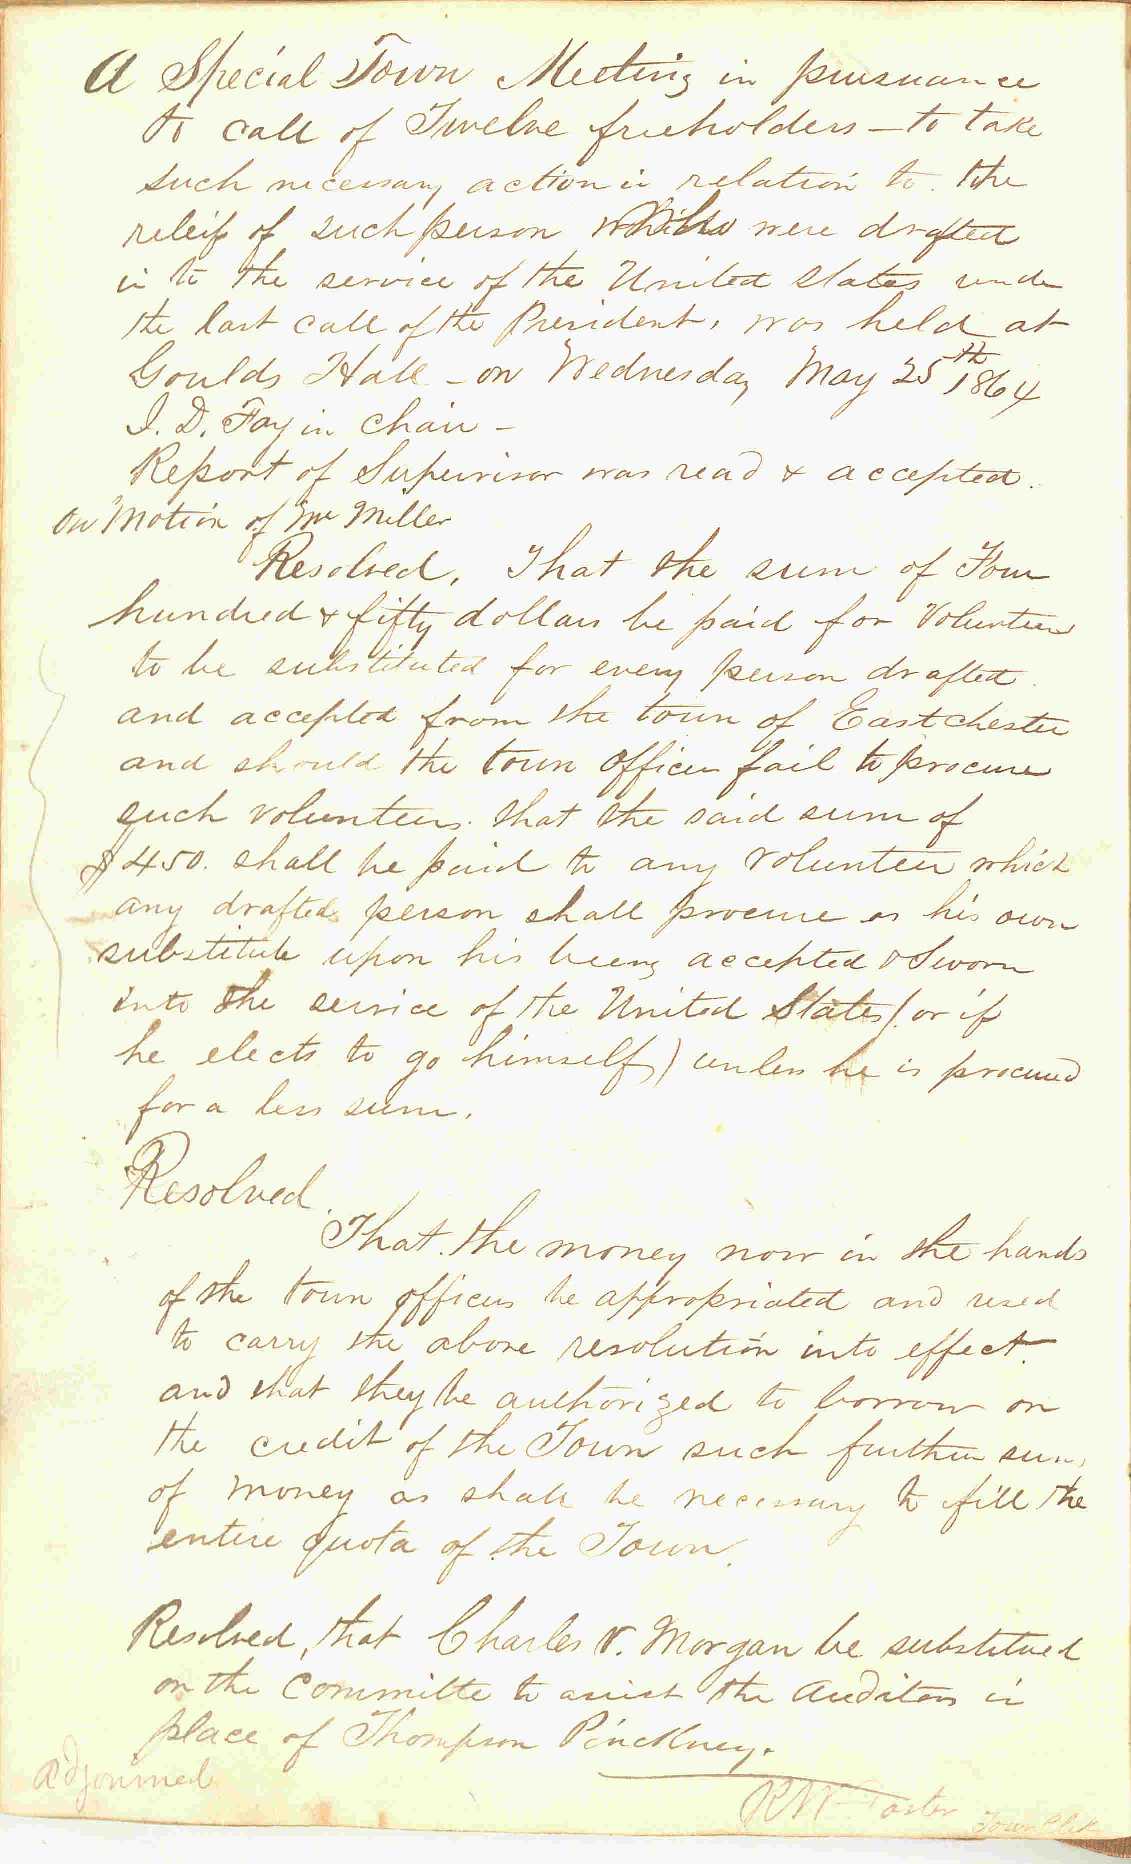 A Special Town Meeting in pursuance
to call of Twelve freeholders — to take
such necessary action in relation to the
releif of such person who were drafted
in to the service of the United states under
the last call of the President, was held at
Goulds Hall - on Wednesday May 25th 1864
I. D. Fay in chair -
Report of Supervisor was read & accepted.
On Motion of Mr Miller
Resolved, That the sum of Four
hundred & fifty dollars be paid for Volunteers
to be substituted for every person drafted
and accepted from the town of Eastchester
and should the town officers fail to procure
such volunteers. that the said sum of
$450. shall be paid to any volunteer which
any drafted person shall procure as his own
substitute upon his being accepted & Sworn
into the service of the United States (or if
he elects to go himself) unless he is procured
for a less sum.
Resolved.
That the money now in the hands
of the town officers be appropriated and used
to carry the above resolution into effect.
and that they be authorized to borrow on
the credit of the Town such further sums
of money as shall be necessary to fill the
entire quota of the Town.
Resolved, that Charles V. Morgan be substitued
on the Committe to assist the Auditors in
place of Thompson Pinckney.
Adjourned
R W Foster Town Clerk